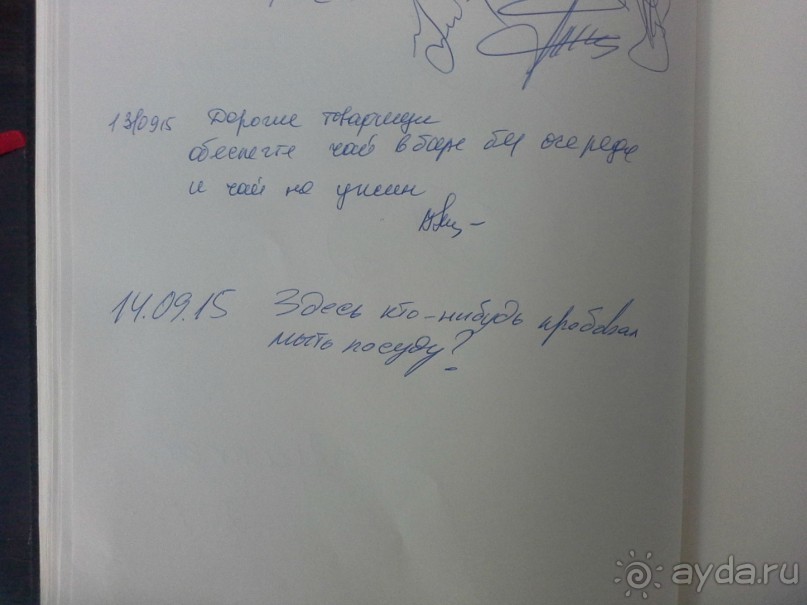 13/09/15 Дорогие товарищи
обеспечте чай в баре без очереди
и чай на ужин
14.09.15 Здесь кто-нибудь пробовал
мыть посуду?
ayda.ru